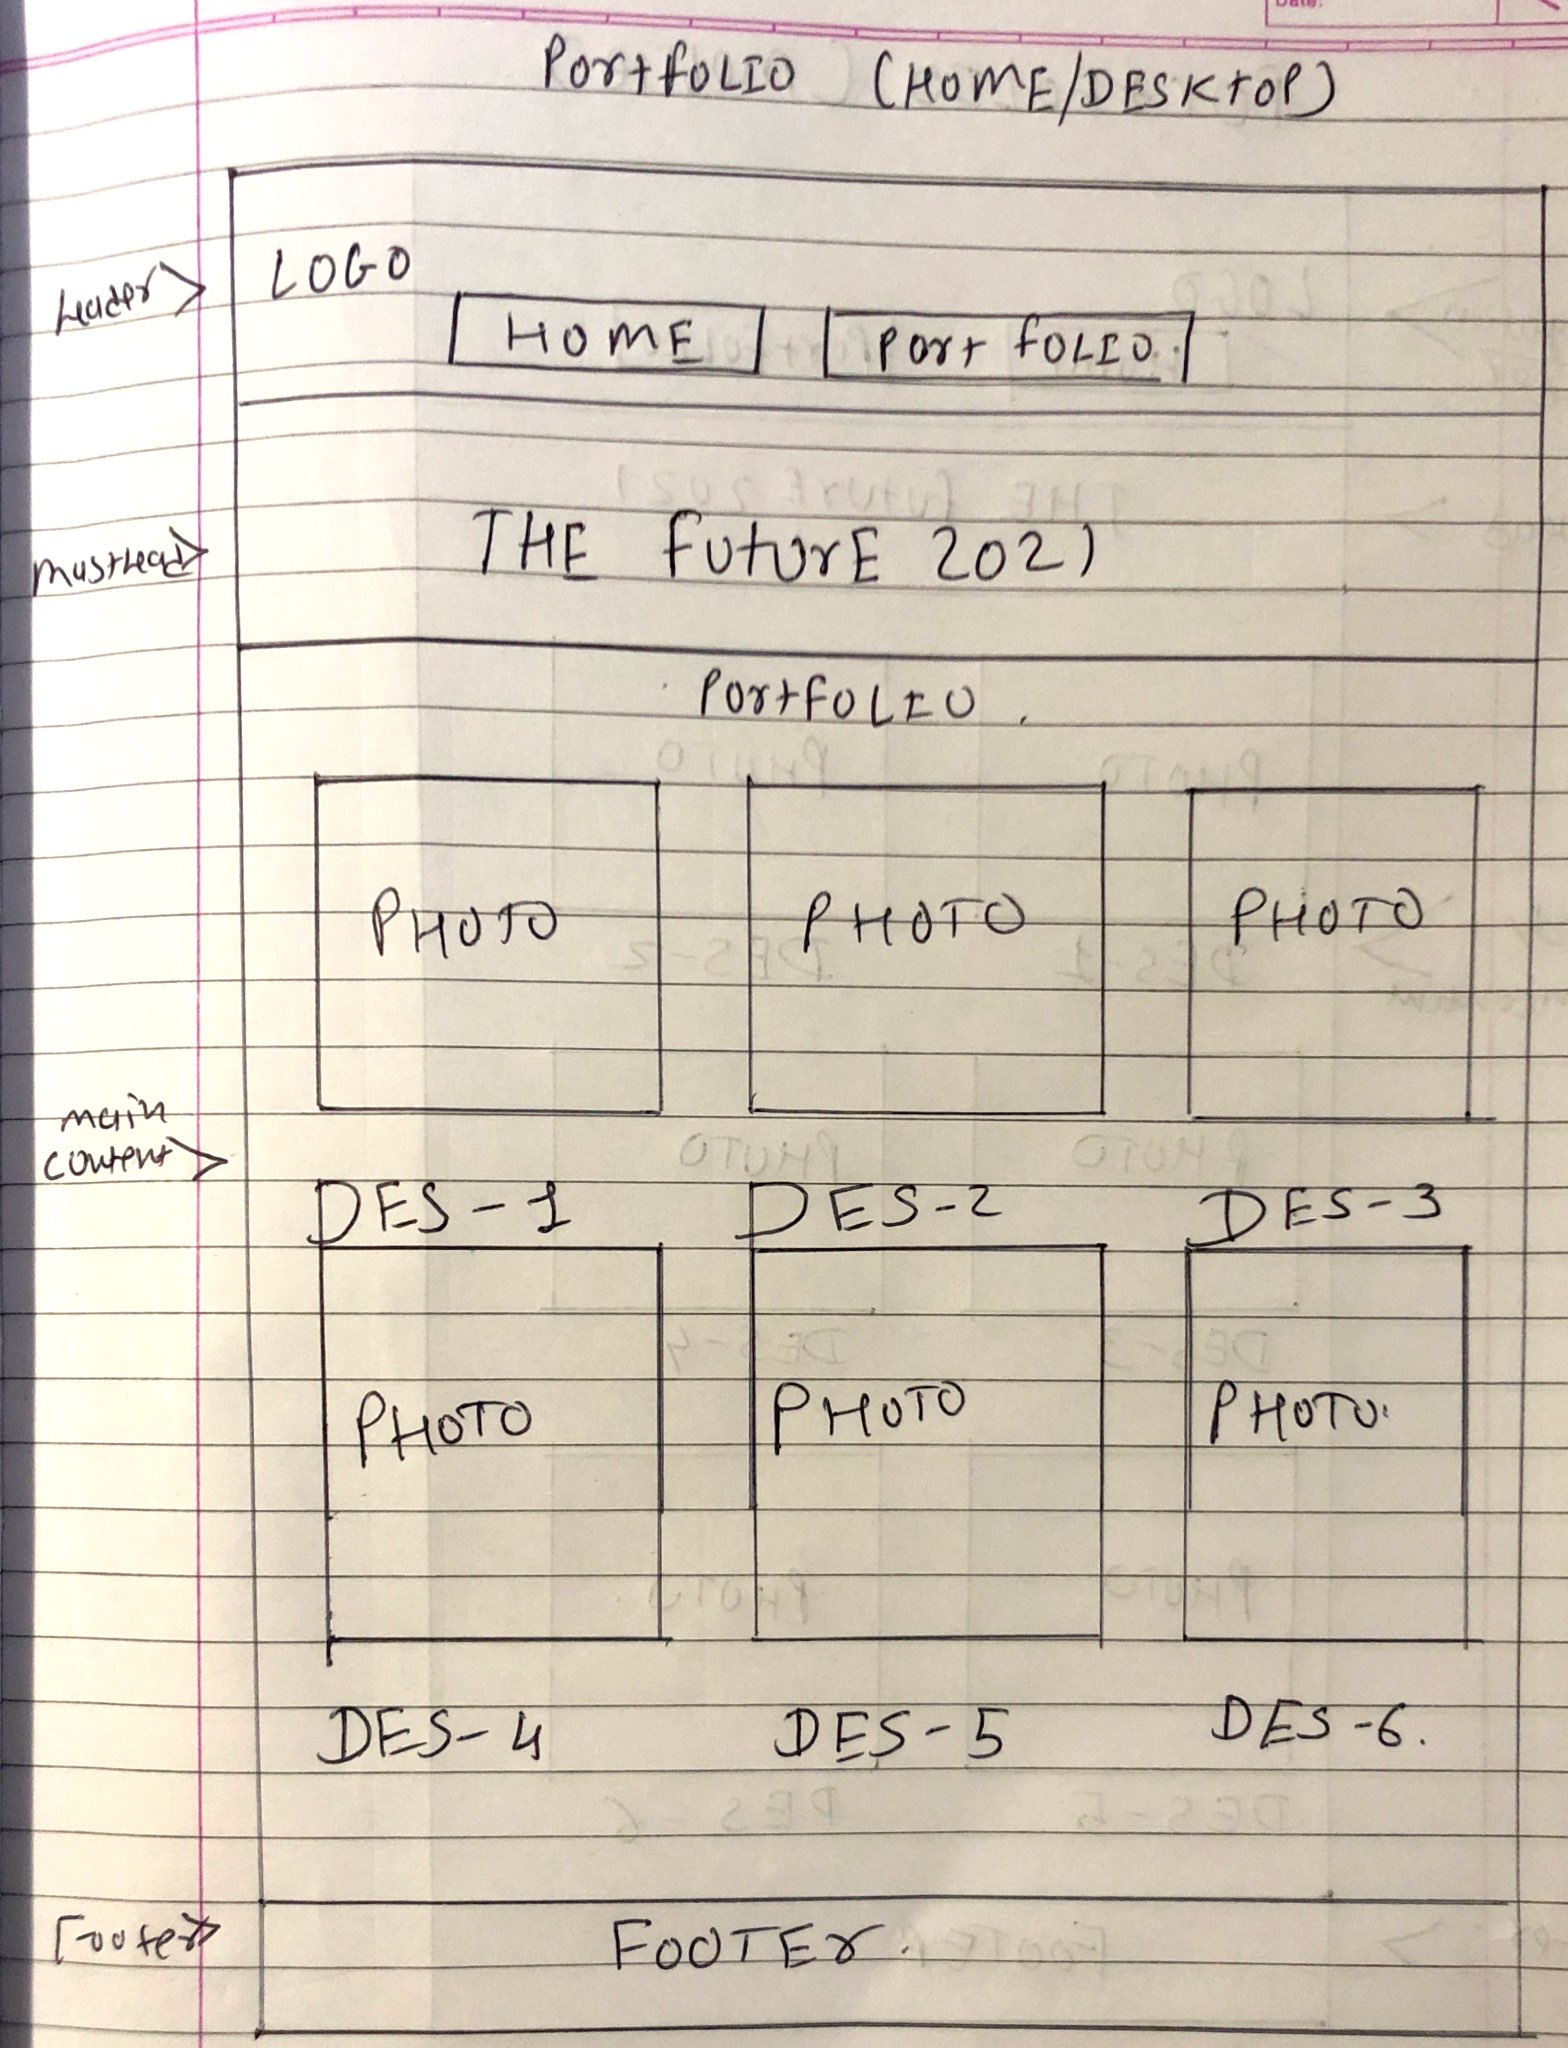 Date:
PortfOLIO (HOME/DESKTOP)
Header>
LOGO
HOME
Port fOLIO.
mastHead>
THE FuturE 2021
PortFOLIO.
PHOTO
PHOTO
PHOTO
main
content>
DES-1
DES-2
DES-3
PHOTO
PHOTO
PHOTO.
DES-4
DES-5
DES-6.
Footer>
FOOTEr.